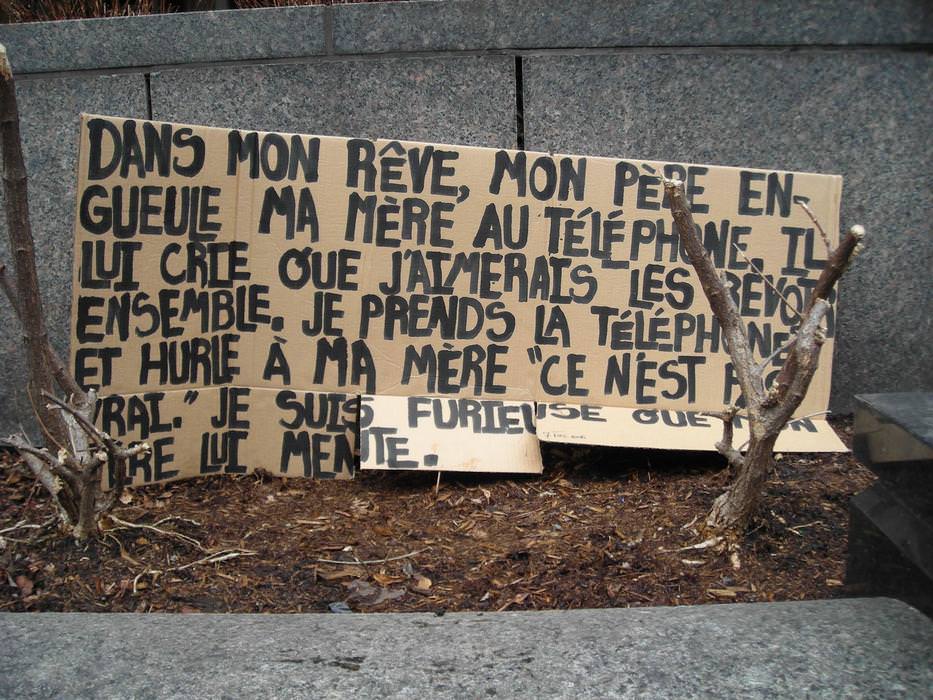 DANS MON RÊVE, MON PÈRE EN-
GUEULE MA MÈRE AU TÉLÉPHONE. IL
LUI CRIE QUE J'AIMERAIS LES REVOIR
ENSEMBLE. JE PRENDS LA TÉLÉPHONE
ET HURLE À MA MÈRE "CE N'EST PAS
VRAI." JE SUIS FURIEUSE QUE MON
PÈRE LUI MENTE.